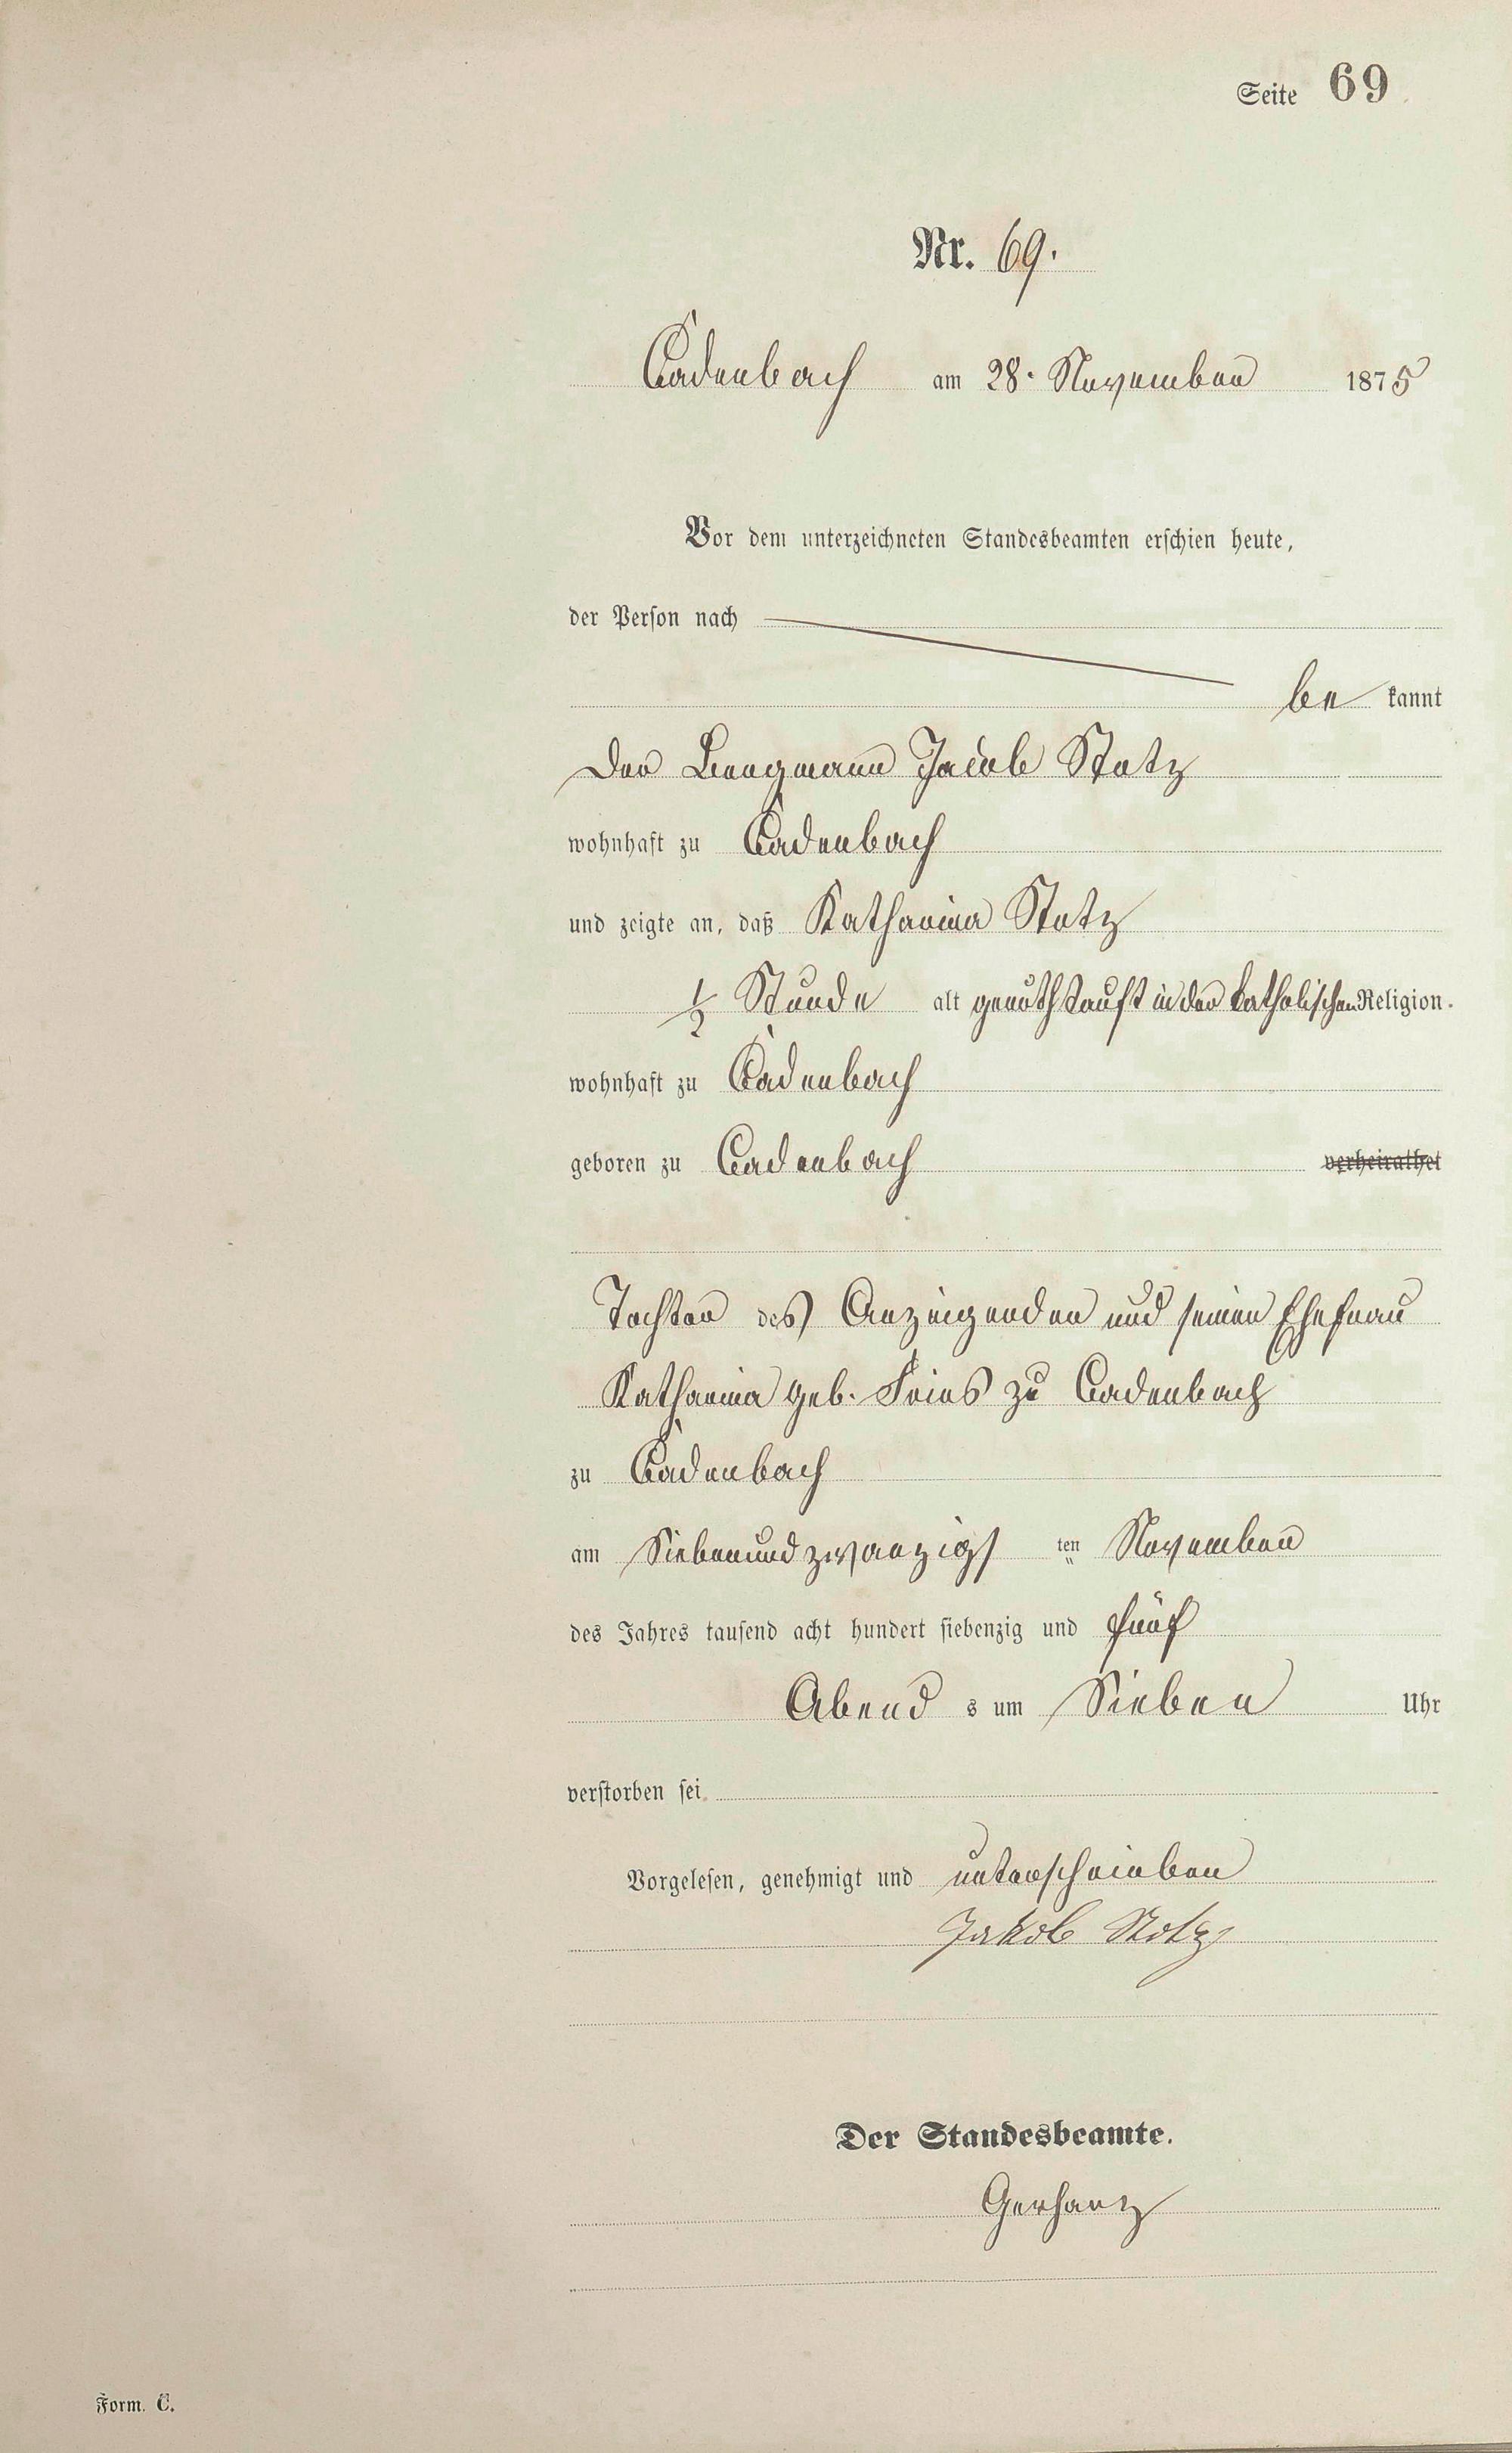 Seite 69
Nr. 69.
Cadenbach am 28. November 1875
Vor dem unterzeichneten Standesbeamten erschien heute,
der Person nach
be kannt
der Bergmann Jacob Stotz
wohnhaft zu Cadenbach
und zeigte an, daß Katharina Stotz
1/2 Stunde alt genothtauft in der katholischen Religion.
wohnhaft zu Cadenbach
geboren zu Cadenbach verheirathet
Tochter des Anzeigenden und seiner Ehefrau
Katharina geb. Fries zu Cadenbach
zu Cadenbach
am Siebenundzwanzigs ten November
des Jahres tausend acht hundert siebenzig und fünf
Abend s um Sieben Uhr
verstorben sei.
Vorgelesen, genehmigt und unterschrieben
Jakob Stotz
Der Standesbeamte.
Gerhartz
Form. C.